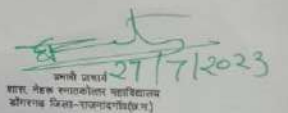 27/7/2023
प्रभारी प्राचार्य
शास. नेहरू स्नातकोत्तर महाविद्यालय
डोंगरगढ जिला-राजनांदगाँव(छ.ग.)